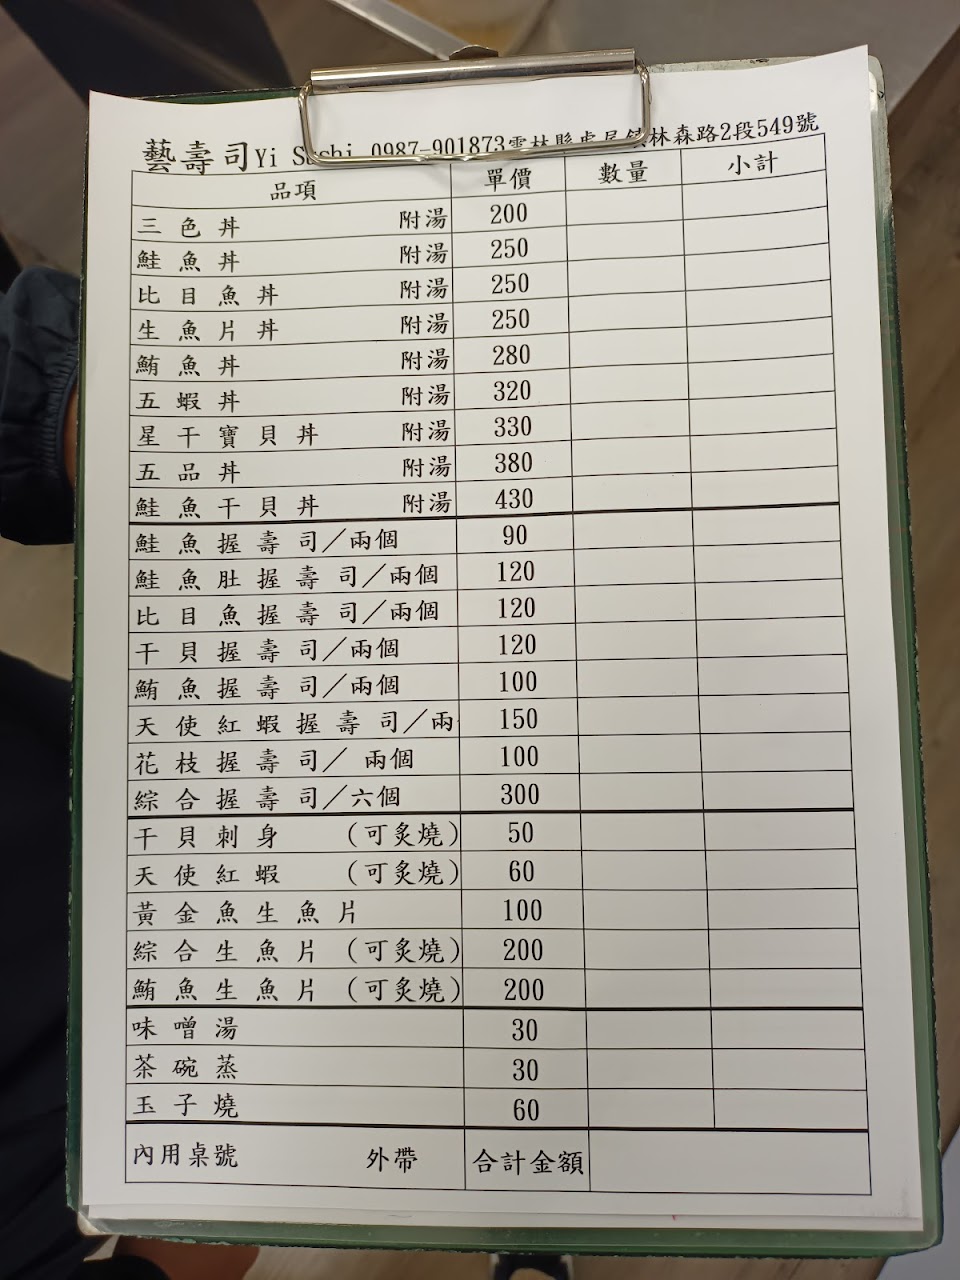 藝壽司Yi Sushi 0987-901873雲林縣虎尾鎮林森路2段549號
品項 單價 數量 小計
三色丼 附湯 200
鮭魚丼 附湯 250
比目魚丼 附湯 250
生魚片丼 附湯 250
鮪魚丼 附湯 280
五蝦丼 附湯 320
星干寶貝丼 附湯 330
五品丼 附湯 380
鮭魚干貝丼 附湯 430
鮭魚握壽司／兩個 90
鮭魚肚握壽司／兩個 120
比目魚握壽司／兩個 120
干貝握壽司／兩個 120
鮪魚握壽司／兩個 100
天使紅蝦握壽司／兩 150
花枝握壽司／ 兩個 100
綜合握壽司／六個 300
干貝刺身 (可炙燒) 50
天使紅蝦 (可炙燒) 60
黃金魚生魚片 100
綜合生魚片 (可炙燒) 200
鮪魚生魚片 (可炙燒) 200
味噌湯 30
茶碗蒸 30
玉子燒 60
內用桌號 外帶 合計金額